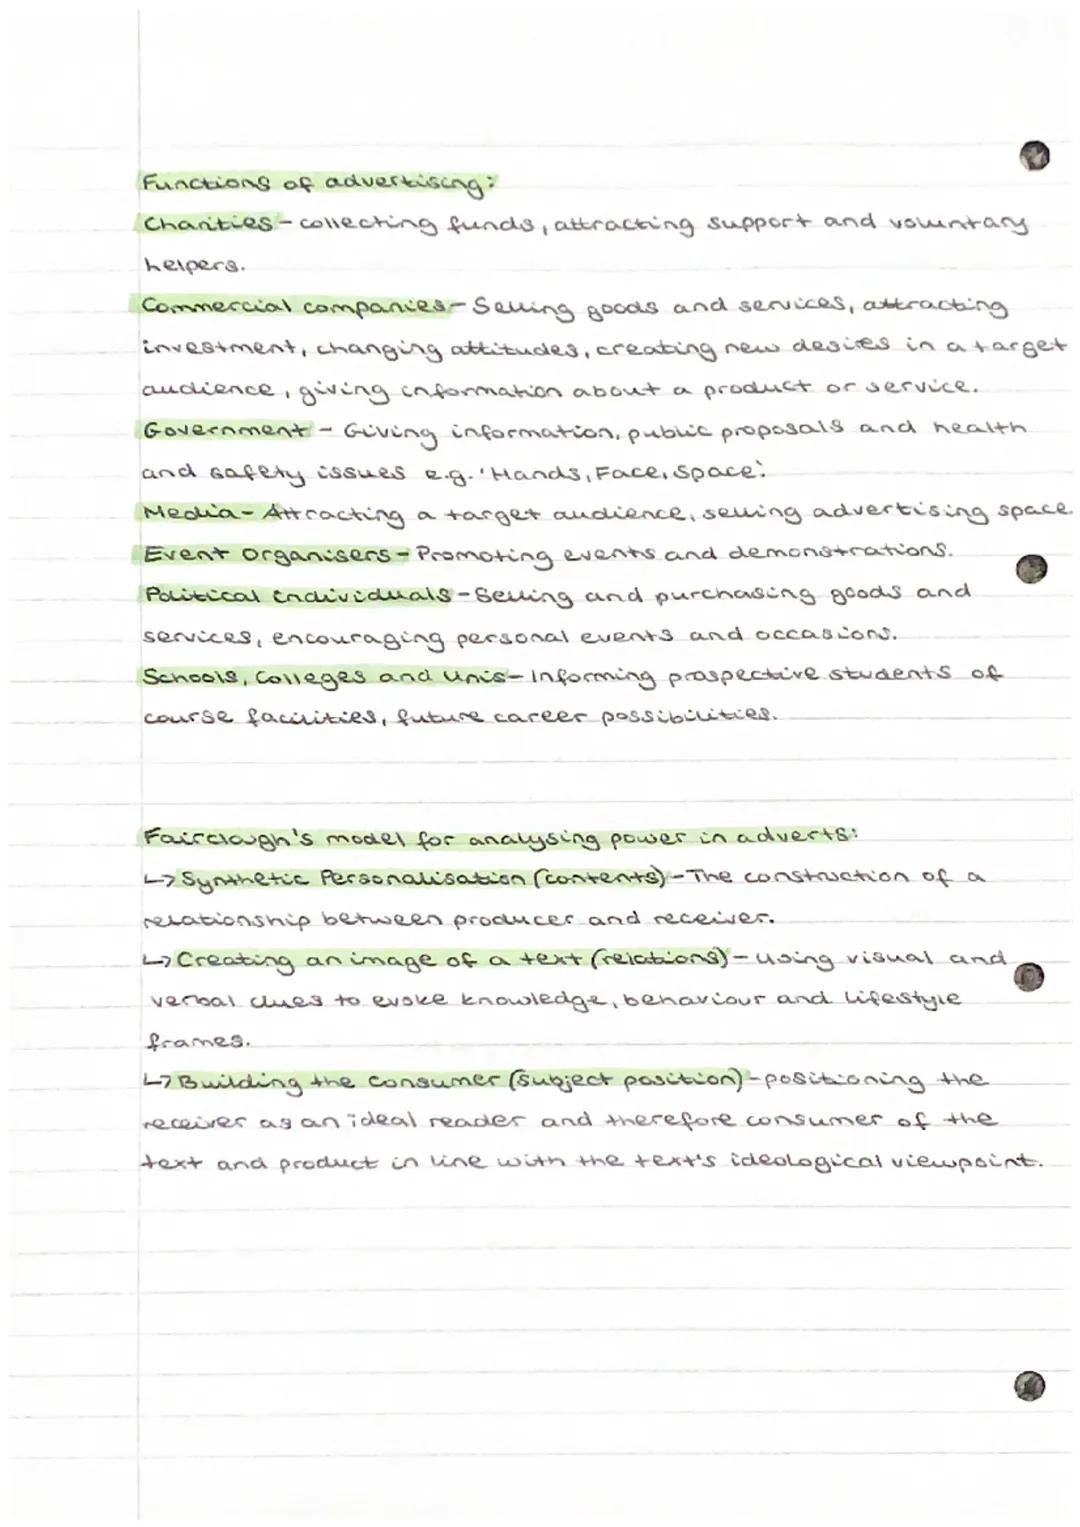 Functions of advertising:
Charities - collecting funds, attracting support and voluntary
helpers.
Commercial companies - Selling goods and services, attracting
investment, changing attitudes, creating new desires in a target
audience, giving information about a product or service.
Government - Giving information, public proposals and health
and safety issues e.g. 'Hands, Face, Space'.
Media - Attracting a target audience, selling advertising space.
Event Organisers - Promoting events and demonstrations.
Political individuals - Selling and purchasing goods and
services, encouraging personal events and occasions.
Schools, Colleges and Unis - Informing prospective students of
course facilities, future career possibilities.
Fairclough's model for analysing power in adverts:
↳ Synthetic Personalisation (contents) - The construction of a
relationship between producer and receiver.
↳ Creating an image of a text (relations) - using visual and
verbal clues to evoke knowledge, behaviour and lifestyle
frames.
↳ Building the consumer (subject position) - positioning the
receiver as an ideal reader and therefore consumer of the
text and product in line with the text's ideological viewpoint.